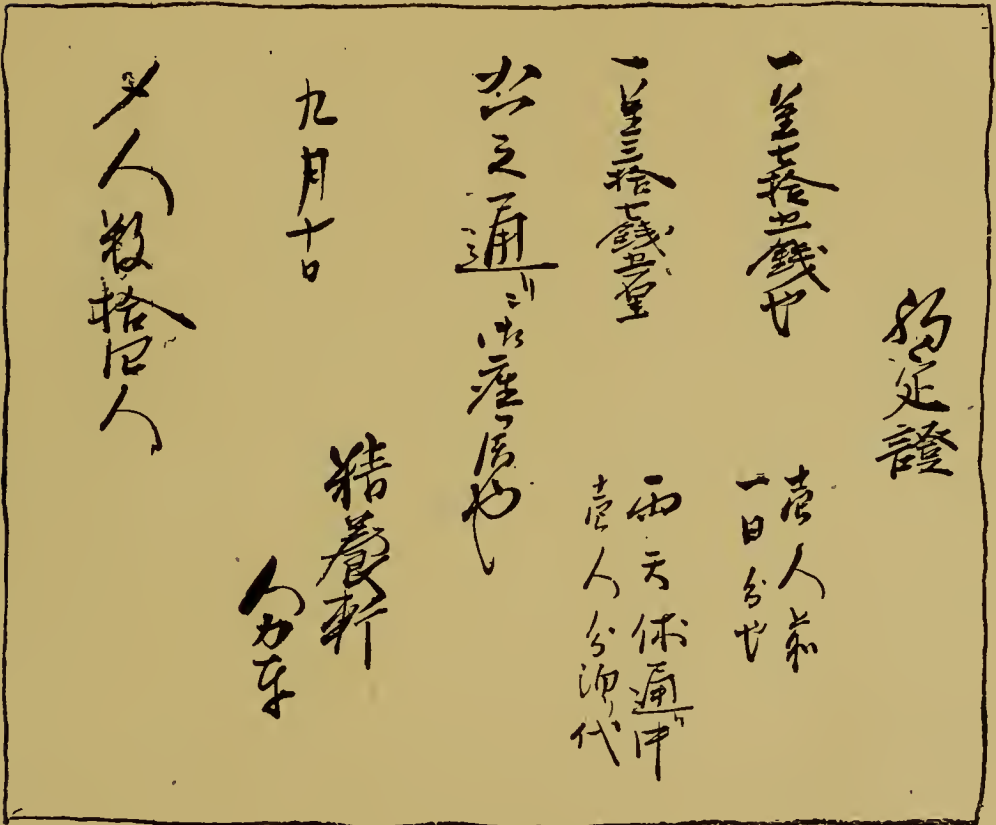 約定證
一金七拾五銭也
壱人前
一日分也
一金三拾七銭五厘
雨天休通り中
壱人分泊り代
右之通ニ御座候也
九月十日
精養軒
人力車
〆人数拾四人